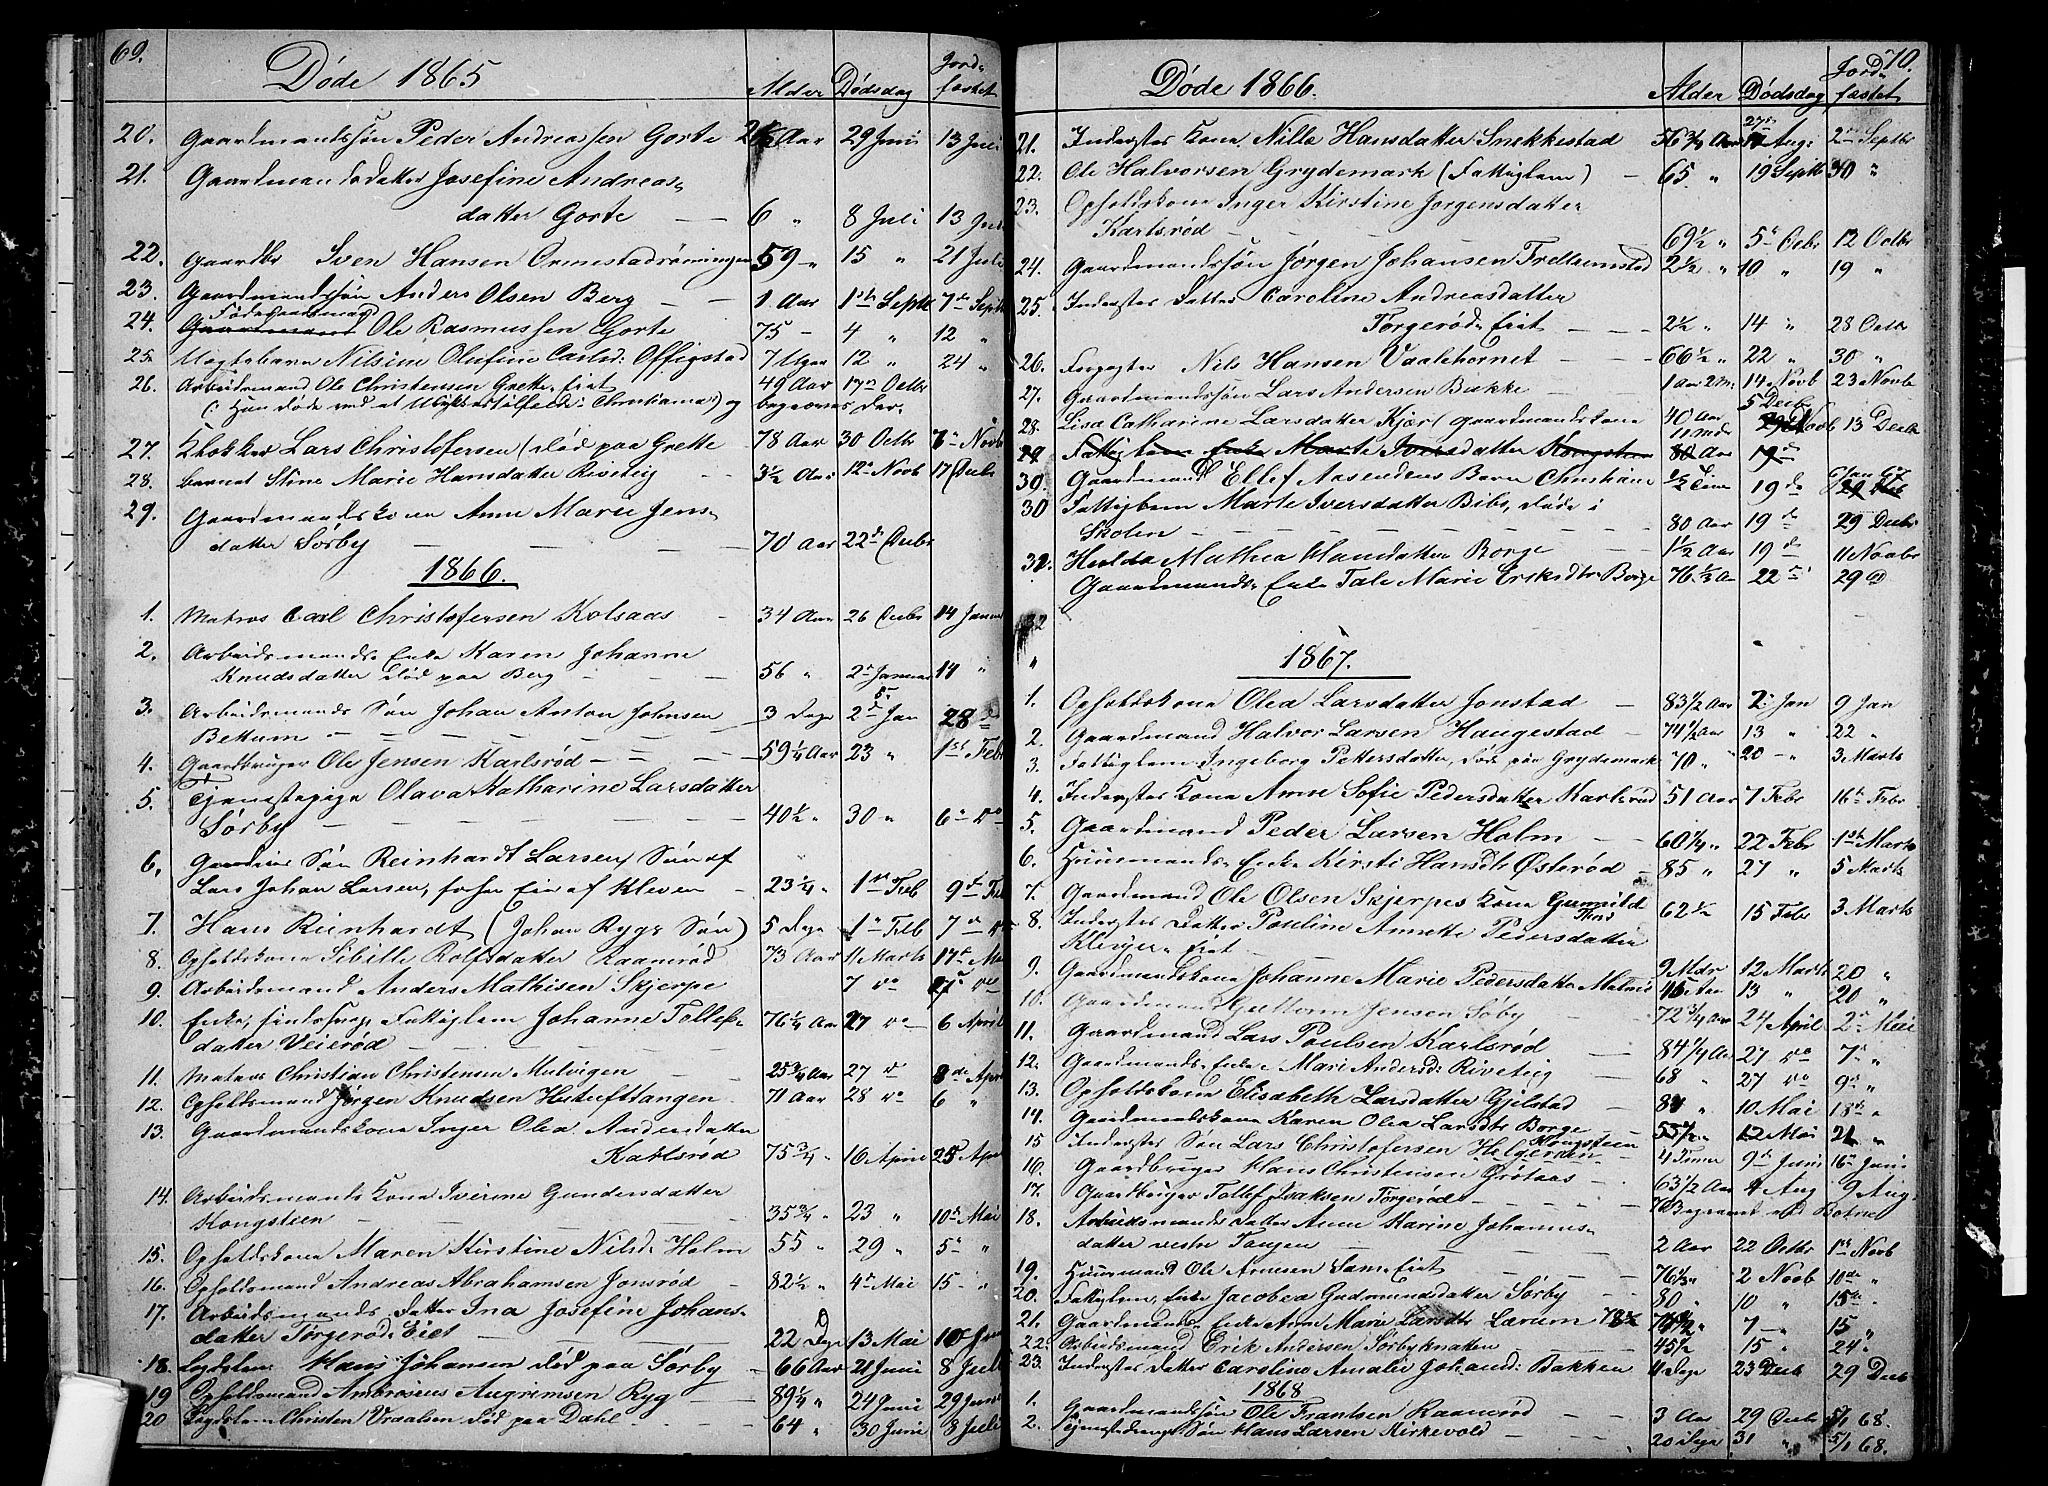 69.
Døde 1865 Alder Dødsdag Jord-
fæstet
20. Gaardmandssøn Peder Andreassen Gorte Aar 29 Juni 13 Juli
21. Gaardmandsdatter Josefine Andreas-
datter Gorte — — 6 " 8 Juli 13 Juli
22. Gaardbr Sven Hansen Ormestadrøningen 59 " 15 " 21 Juli
23. Gaardmandssøn Anders Olsen Berg — — 1 Aar 1ste Septb 7de Septb
24. Gaardmand Ole Rasmussen Gorte 75 - 4 " 12 "
25. Nilsine Olufine Carlsd: Offigstad 7 Uger 12 " 24 "
26. Arbeidsmand Ole Christensen Grette Eiet 49 Aar 17de Octbr
(: Han døde ved et Ulykkestilfælde i Christiania) og begraves der.
27. Klokker Lars Christofersen (død paa Grette 78 Aar 30 Octbr 7de Novb
28. Barnet Stine Marie Hansdatter Rivetig - 3½ Aar 12te Novb 17 Decbr
29. Gaardmandskone Anne Marie Jens-
datter Sørby — — — 70 Aar 22de Decbr
1866.
1. Matros Carl Christofersen Kolsaas - 34 Aar 26 Decbr 14 Januar
2. Arbeidsmands Enke Karen Johanne
Knudsdatter død paa Berg - - 56 " 2de Januar 14 "
3. Arbeidsmands Søn Johan Anton Johnsen 3 Dage 2de Jan 28 de
Bettum - — — —
4. Gaardbruger Ole Jensen Karlsrød — — 59¼ Aar 23 " 1ste Feb
5. Tjenestepige Olava Katharine Larsdatter
Sørby — — — 40½ " 30 " 6te do
6. Søn Reinhardt Larsen, Søn af
Lars Johan Larsen, forhen Eier af Kleven - 23¼ " 1ste Feb 9de Feb
7. Hans Reinhardt (Johan Rygs Søn) 5 Dage 1ste Feb 7de do
8. Opholdskone Sibille Rolfsdatter Raanerød 73 Aar 11 Marts 17de Ma
9. Arbeidsmand Anders Mathisen Skjerpe 7 do do
10. Enke, sindssvag Fattiglem Johanne Tollefs- 76¼ Aar 27 do 6 April
datter Veierød — — —
11. Matros Christian Christensen Mulvigen - 25¾ Aar 27 do 8de Apr
12. Opholdsmand Jørgen Knudsen Hutufttangen 71 Aar 28 do 6 "
13. Gaardmandskone Inger Olea Andersdatter
Karlsrød 75¾ " 16 April 25 Apr
14. Arbeidsmands Kone Iverine Gundersdatter
Kongsteen — — — 35¾ " 23 " 10de Mai
15. Opholdskone Maren Kirstine Nilsd: Holm 55 " 29 " 5te "
16. Opholdsmand Andreas Abrahamsen Jonsrød - 82½ " 4de Mai 15 - "
17. Arbeidsmands Datter Ina Josefine Johans-
datter Torgerød Eiet — — 22 Dage 13 Mai 10 Juni
18. Legdslem Hans Johansen død paa Sørby - 66 Aar 21 Juni 8 Juli
19 Opholdsmand Ambrosius Augrimsen Ryg - 89¼ " 24 Juni 29 Juni
20 Legdslem Christen Vraalsen død paa Dahl - 64 " 30 Juni 8 Juli
70.
Døde 1866. Alder Dødsdag Jord-
fæstet
21. Inderstes Kone Nille Hansdatter Snekkestad 56¾ Aar 27de Aug: 2den Septbr
22. Ole Halvorsen Grydemark (Fattiglem) — 65 " 19 Septb 30 "
23. Opholdskone Inger Kirstine Jørgensdatter
Karlsrød — — — 69½ " 5te Octbr 12 Octbr
24. Gaardmandssøn Jørgen Johansen Trellsumstad 2½ " 10 " 19 "
25. Inderstes Datter Caroline Andreasdatter
Torgerøds Eiet — — — 2½ " 14 " 28 Octbr
26. Nils Hansen Vaalehornet — — 66½ " 22 " 30 "
27. Gaardmandssøn Lars Andersen Bakke — — 1 Aar 2 M: 14 Novb 23 Novb
28. Lisa Catharine Larsdatter Kjær (Gaardmandskone 40 Aar 11 Mdr 5 Decbr 13 Decbr
29 Fattiglem Enke Marte Iversdatter Kongsteen 80 Aar 19de
30. Gaardmand Ellef Aasendens Barn Christiane ½ Time 19 de 6/Jan 67
30 Fattiglem Marte Iversdatter Bibo, døde i
Skolen — — 80 Aar 19 de 29 Decbr
31. Hulda Mathea Hansdatter Borge — — 1½ Aar 19 de 11 Novbr
Gaardmands Enke Tale Marie Eriksdtr Borge 76½ A 22 de 29 do
32
1867.
1. Opholdskone Olea Larsdatter Jonstad — 83½ Aar 2de Jan 9 Jan
2. Gaardmand Halvor Larsen Haugestad — 74½ Aar 13 " 22 "
3. Fattiglem Ingeborg Pettersdatter, døde paa Grydemark 70 " 20 " 3 Marts
4. Inderstes Kone Anne Sofie Pedersdatter Karlsrød 51 Aar 7 Febr 16de Febr
5. Gaardmand Peder Larsen Holm — 60¼ " 22 Febr 1ste Marts
6. Huusmands Enke Kirsti Hansdtr Østerød - 85 " 27 " 5 Marts
7. Gaardmand Ole Olsen Skjerpes Kone Gunnild 62½ 15 Febr 3 Marts
8. Inderstes Datter Pauline Annette Pedersdatter
Klevjer Eiet
9. Gaardmandskone Johanne Marie Pedersdatter 9 Mdr 12 Marts 20 "
10. Gaardmand Guttorm Jensen Søby — 45 Aar 13 " 20 "
11. Gaardmand Lars Poulsen Karlsrød 72¾ Aar 24 April 2de Mai
12. Gaardmands Enke Mari Andersd: Rivetig — 84¼ Aar 27 do 7de "
13. Opholdskone Elisabeth Larsdatter Gjelstad — 68 " 27 do 9de "
14. Gaardmandskone Karen Olea Larsdtr Borge — 84 " 10 Mai 18de "
15 Inderstes Søn Lars Christofersen Helgeroen Kongsteen 55½ " 12 Mai 21 "
16. Gaardbruger Hans Christensen Grotaas — — 4 Timer 9de Juni 16de Juni
17. Gaardbruger Tollef Isaksen Torgerød — 63½ Aar 4 Aug 9 Aug.
18. Arbeidsmands Datter Anne Karine Johannes- Begravet ved Botne
datter vestre Tangen — — 2 Aar 22 Octbr 1ste Novb
19. Huusmand Ole Arnesen Eiet — — 76½ " 2 Novb 10de "
20. Fattiglem, Enke Jacobea Gudmundsdatter Sørby — 80 " 10 " 15de "
21. Gaardmands Enke Anne Marie Larsdtr Lærum 78½ " 7 — 15 "
22. Arbeidsmand Erik Andersen Sørbyknatten — 45½ 15 " 24 "
23. Inderstes Datter Caroline Amalie Johansd: Bakken 4 Dage 23 Decb 29 Decb
1868
1. Gaardmandssøn Ole Frantsen Raanerød — — 3 Aar 29 Decbr 5/1 68.
2. Tjenestedrengs Søn Hans Larsen Kirkevold — — 20 Dage 31 " 5/1 68.